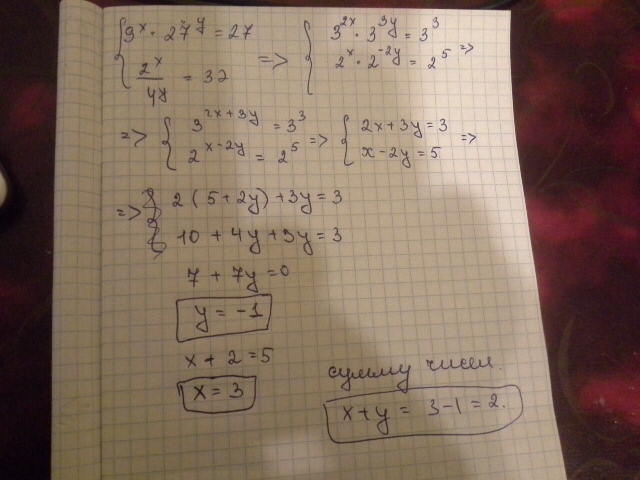 { 3^x · 27^y = 27 => { 3^{2x} · 3^{3y} = 3^3
2^x / 4^y = 32    2^x · 2^{-2y} = 2^5 =>
=> { 3^{2x+3y} = 3^3 => { 2x + 3y = 3 =>
2^{x-2y} = 2^5    x - 2y = 5
=> 2(5+2y) + 3y = 3
10 + 4y + 3y = 3
7 + 7y = 0
y = -1
x + 2 = 5
x = 3
сумму чисел.
x + y = 3 - 1 = 2.